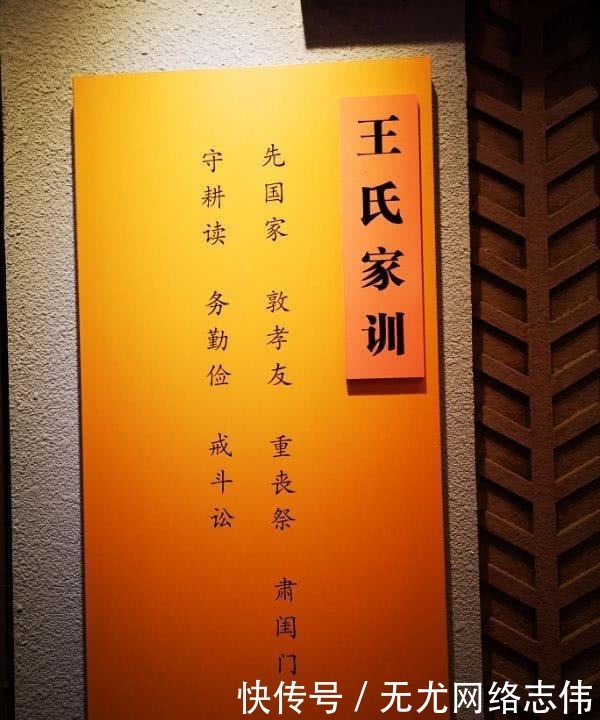 王氏家训
先国家 敦孝友 重丧祭 肃闺门
守耕读 务勤俭 戒斗讼
快传号 / 无尤网络志伟